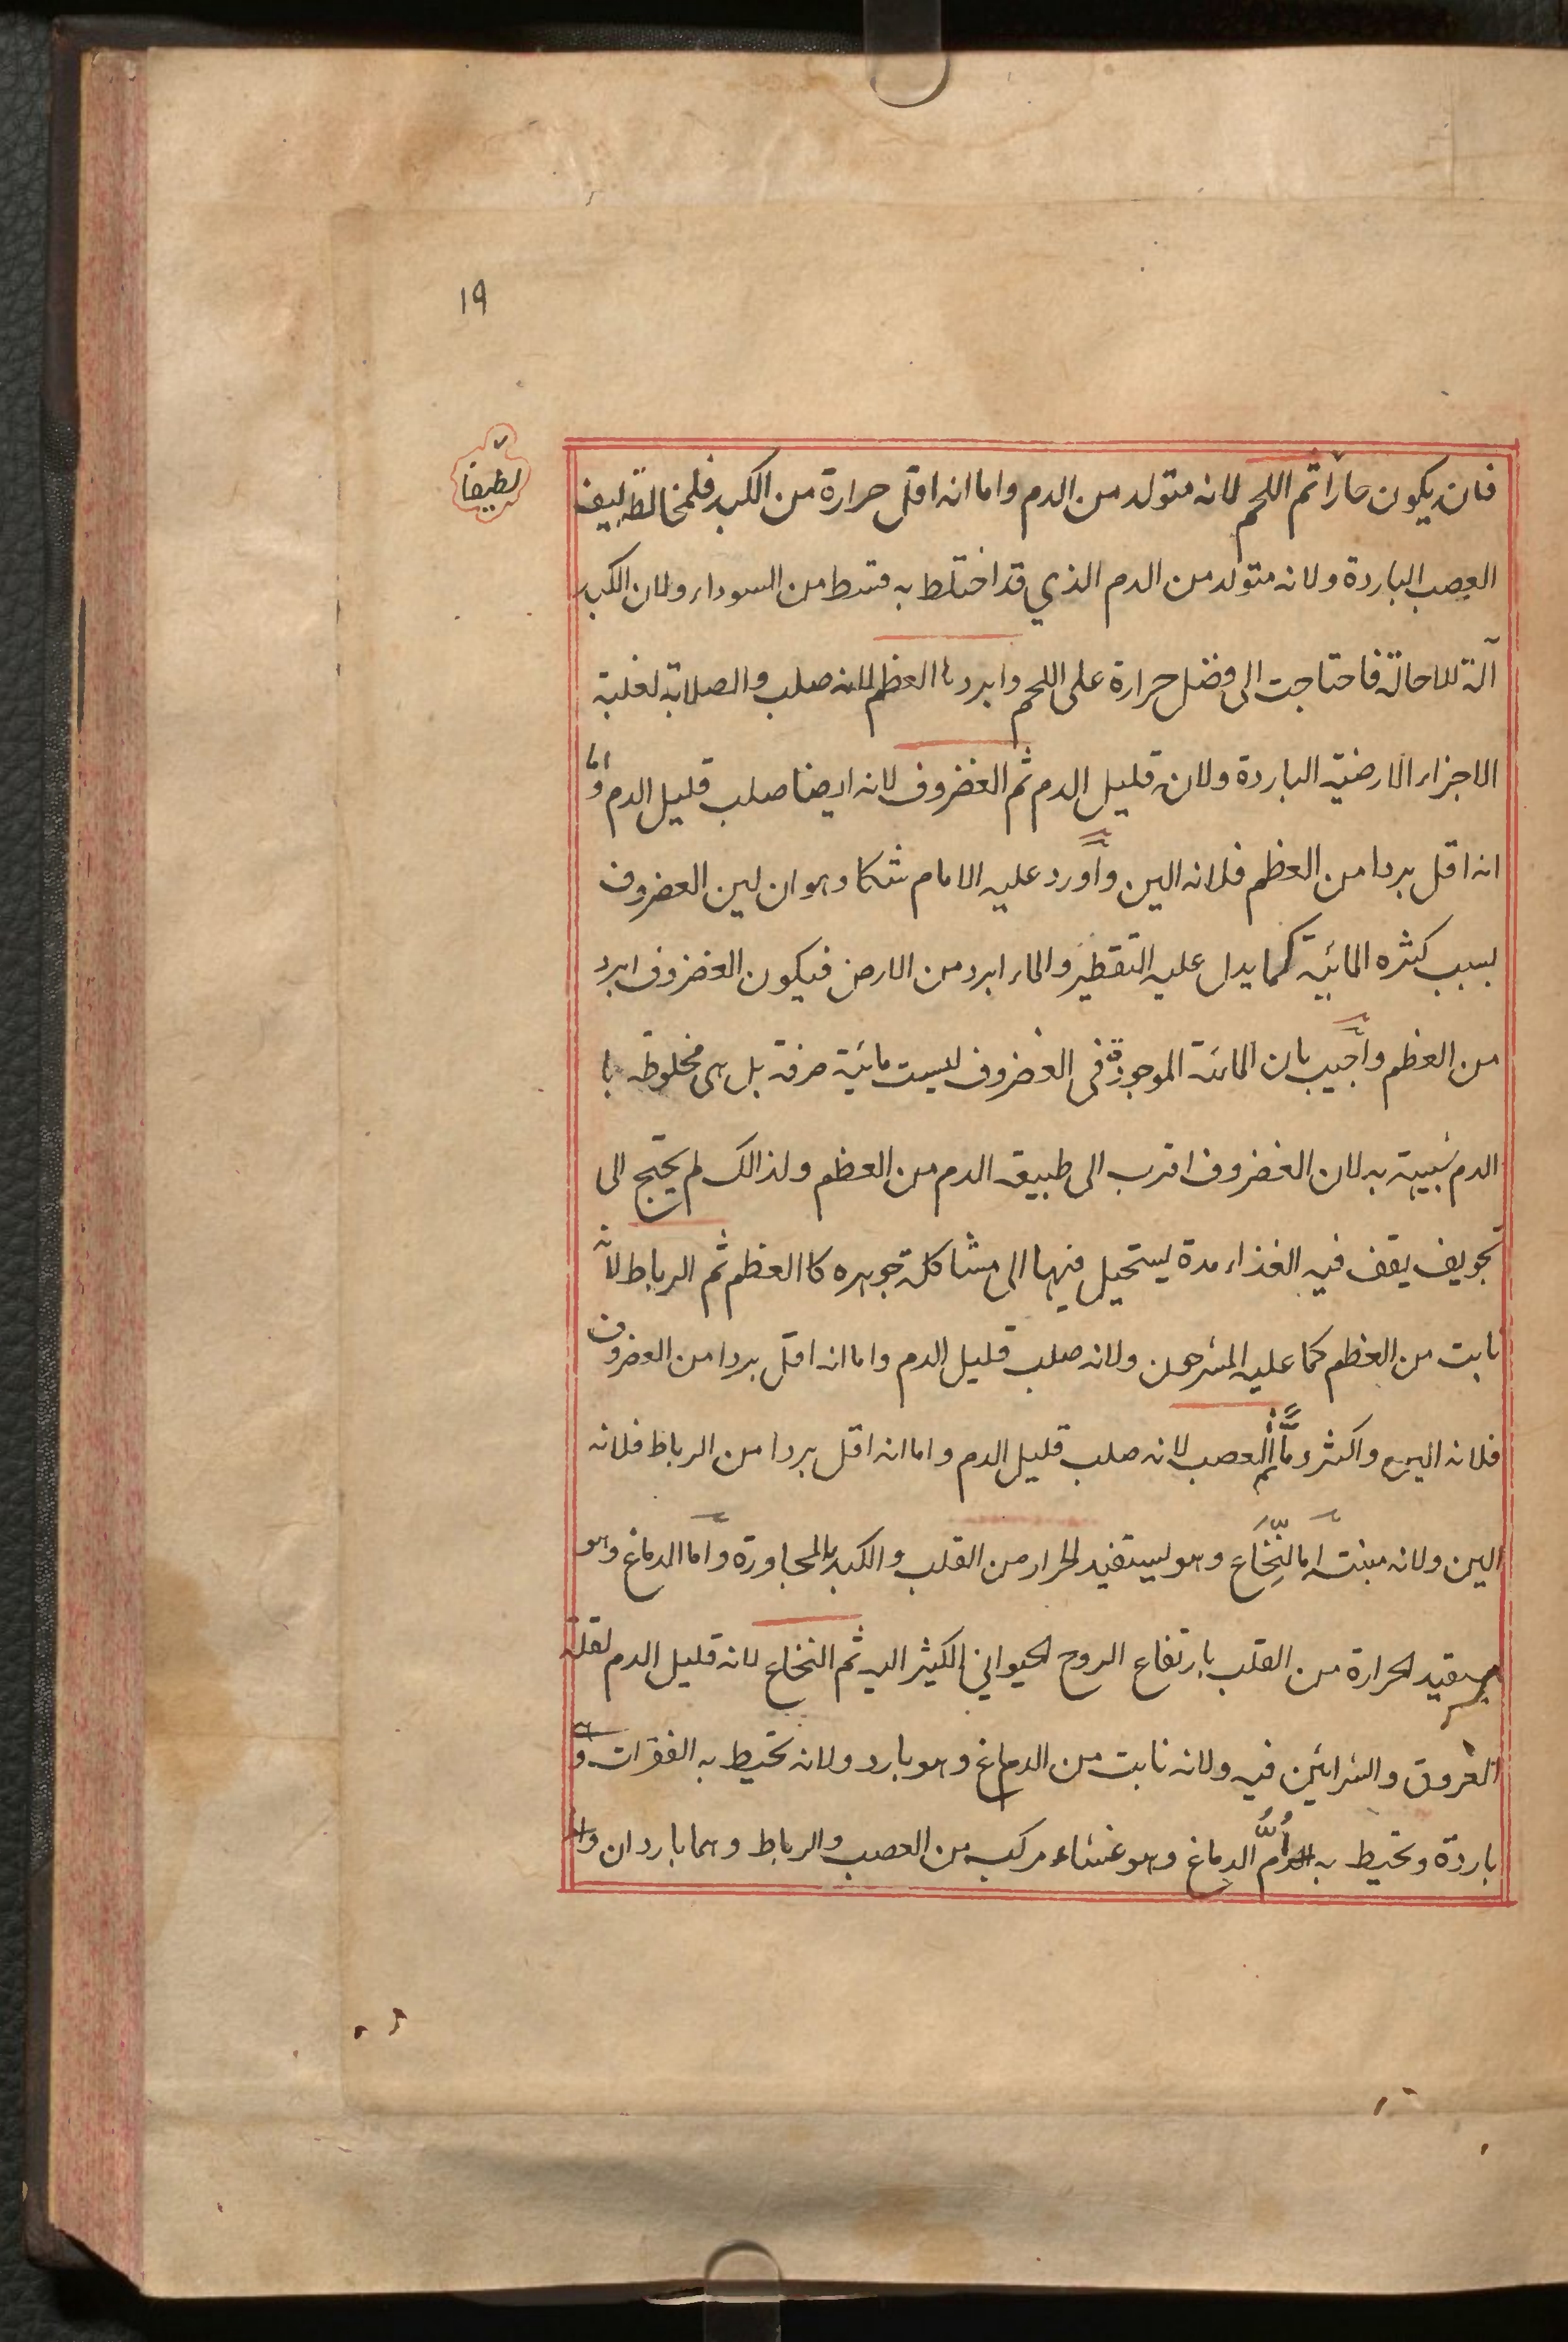 ١٩
لطيفا
فان يكون حارا ثم اللحم لانه متولد من الدم واما انه اقل حرارة من الكبد فلمخالطة ليف
العصب الباردة ولانه متولد من الدم الذي قد اختلط به قسط من السوداء ولان الكبد
آلة للاحالة فاحتاجت الى فضل حرارة على اللحم وابردها العظم لانه صلب والصلابة لغلبة
الاجزاء الارضية الباردة ولانه قليل الدم ثم الغضروف لانه ايضا صلب قليل الدم واما
انه اقل بردا من العظم فلانه الين وأورد عليه الامام شكا وهو ان لين الغضروف
بسبب كثره المائية كما يدل عليه التقطير والماء ابرد من الارض فيكون الغضروف ابرد
من العظم وأجيب بان المائية الموجودة في الغضروف ليست مائية صرفة بل هي مخلوطة با
الدم شبيهة به لان الغضروف اقرب الى طبيعة الدم من العظم ولذالك لم يحتج الى
تجويف يقف فيه الغذاء مدة ليستحيل فيها الى مشاكلة جوهره كا العظم ثم الرباط لانه
نابت من العظم كما عليه المشرحون ولانه صلب قليل الدم واما انه اقل بردا من الغضروف
فلانه الين واكثر دمًا ثم العصب لانه صلب قليل الدم واما انه اقل بردا من الرباط فلانه
الين ولانه منبته اما النِّخَاع وهو يستفيد الحرار من القلب والكبد بالمجاورة واما الدماغ وهو
يستفيد الحرارة من القلب بارتفاع الروح الحيواني الكثير اليه ثم النخاع لانه قليل الدم لقلة
العروق والشرائين فيه ولانه نابت من الدماغ وهو بارد ولانه تحيط به الفقرات وهي
باردة وتحيط به أُمُّ الدماغ وهو غشاء مركب من العصب والرباط وهما باردان